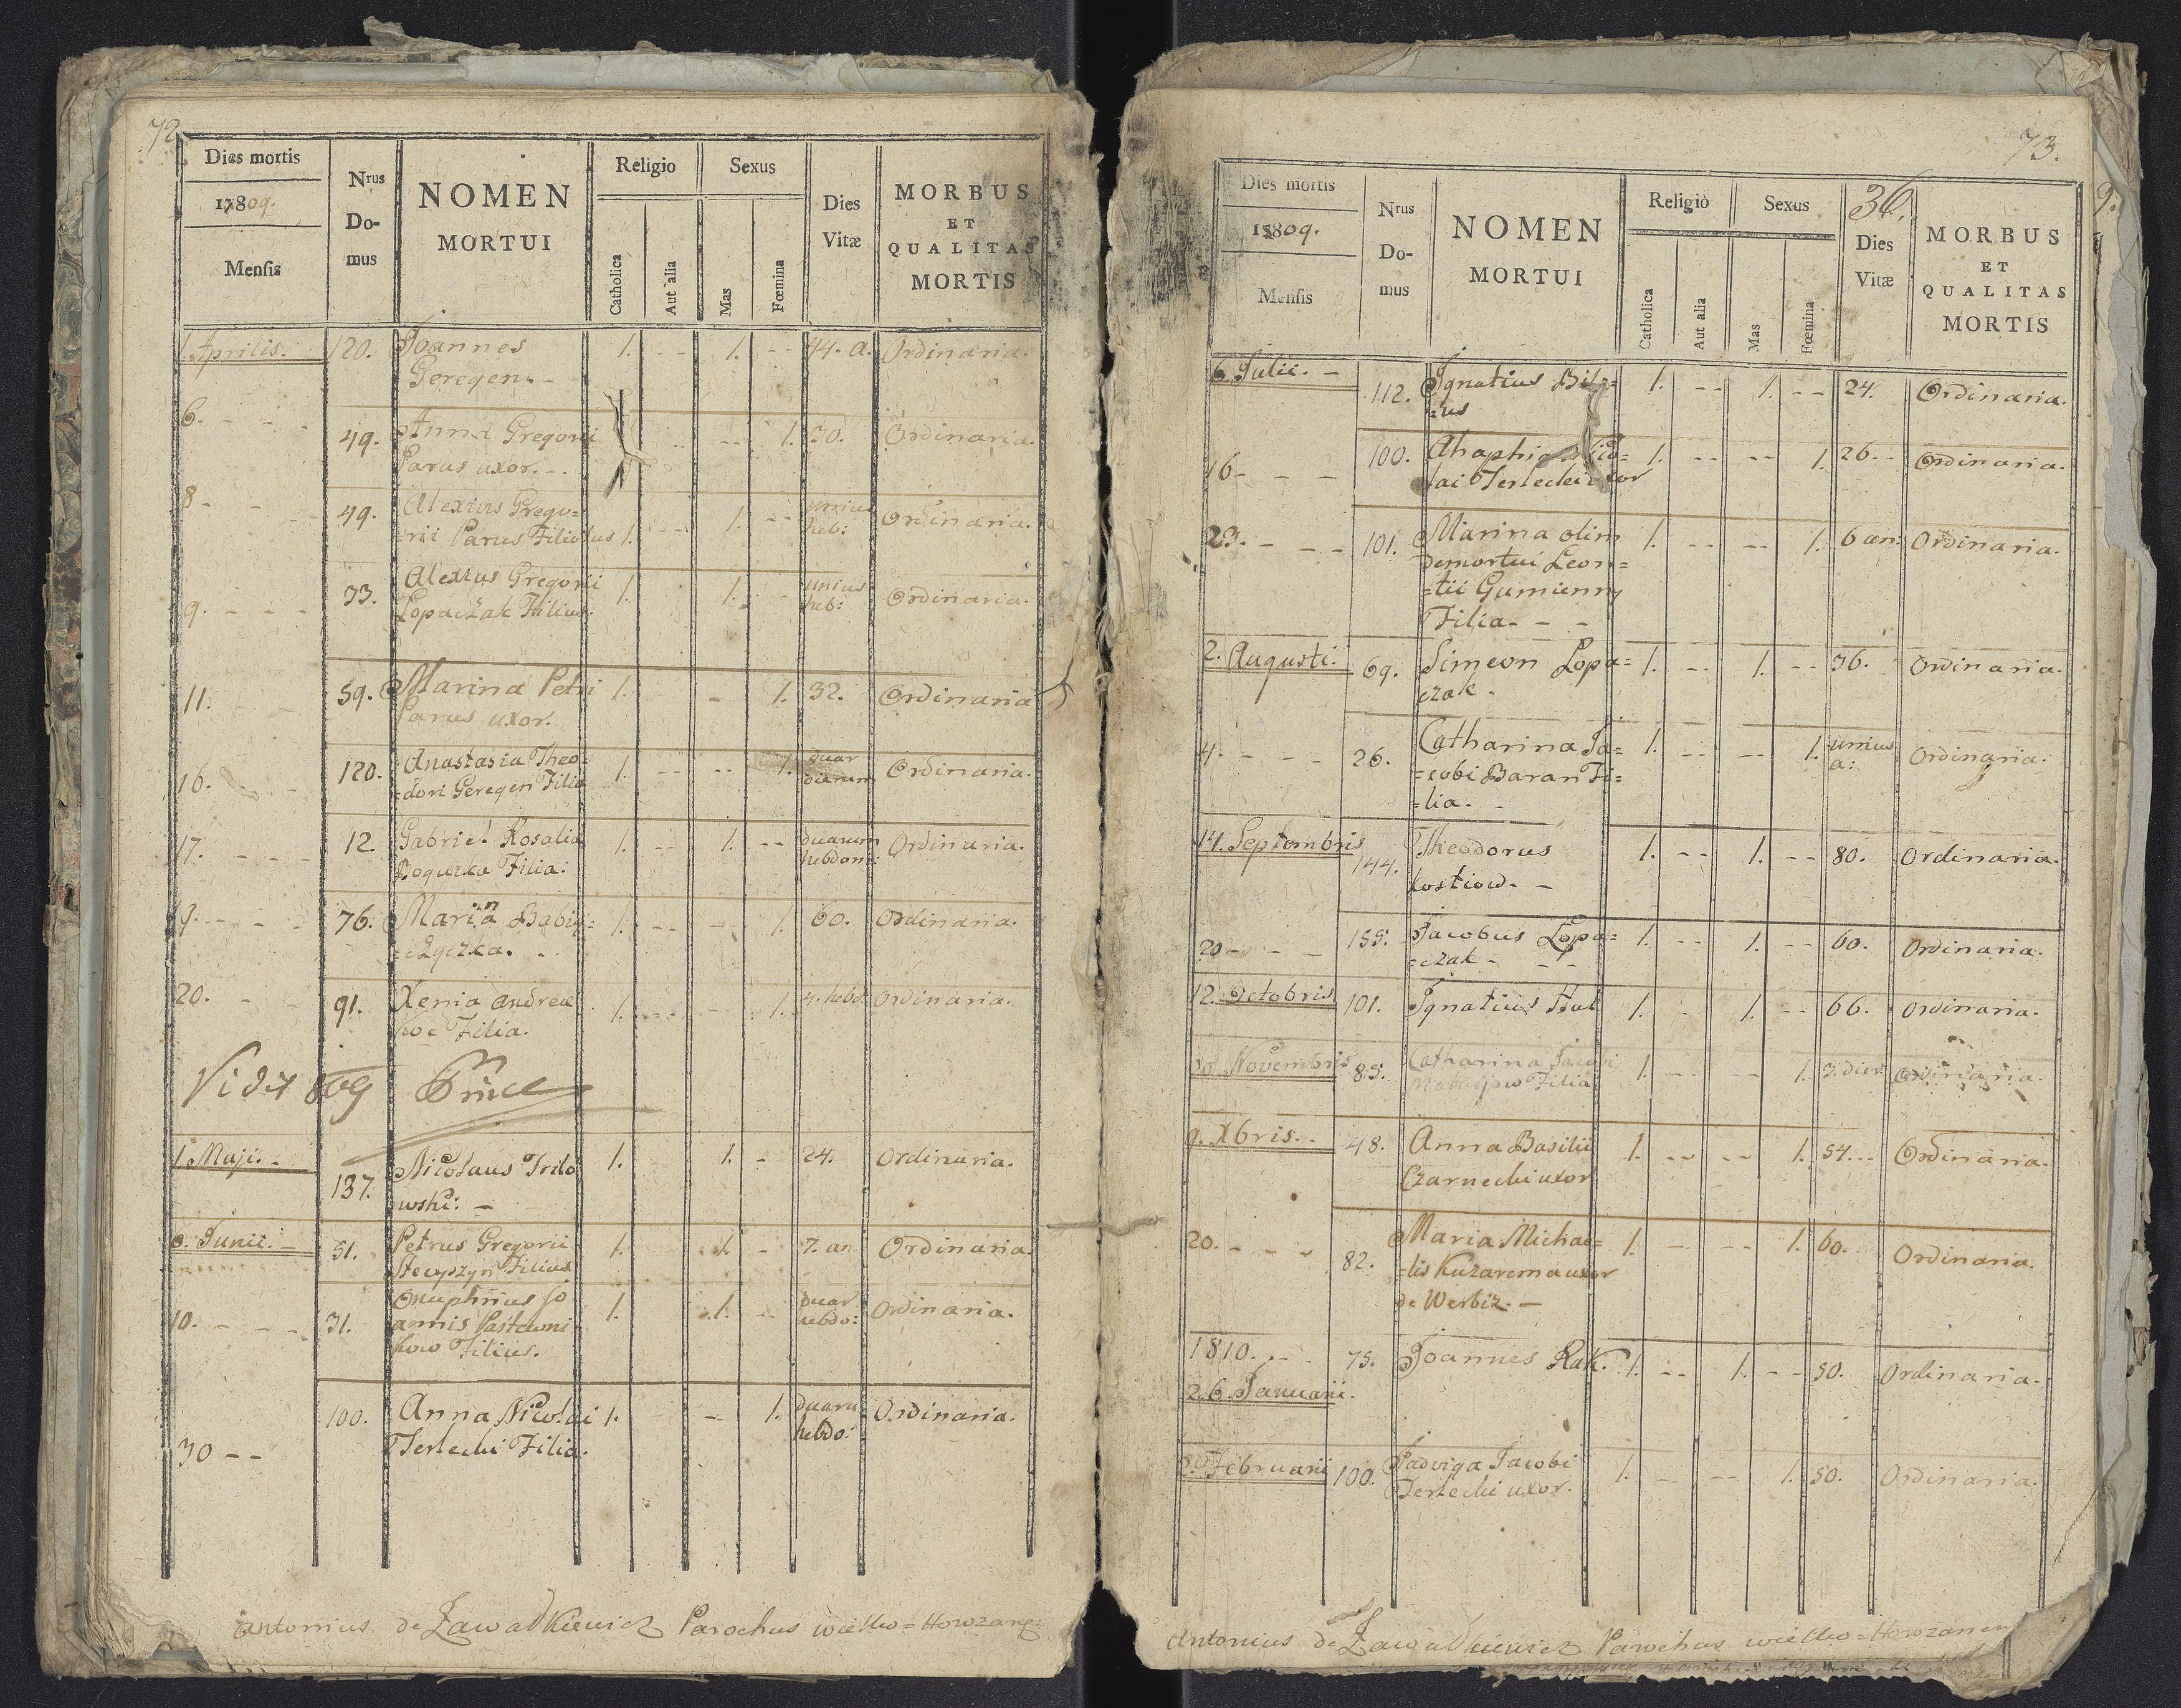 72
Dies mortis
Nrus
Do-
mus
NOMEN
MORTUI
Religio
Sexus
Dies
Vitæ
MORBUS
ET
QUALITAS
MORTIS
1809.
Mensis
Catholica
Aut alia
Mas
Fœmina
1. Aprilis. 120. Joannes 1. -- 1. -- 44. a. Ordinaria.
Geregen. -
6. - - - 49. Anna Gregorii -- -- 1. 30. Ordinaria.
Parus uxor. -.
8 - - - 49. Alexius Grego= 1. -- unius Ordinaria.
=rii Parus Filiolus 1. -- heb:
9. - - - 33. Alexius Gregorii 1. 1. - unius Ordinaria.
Lopaczak Filius. heb:
11. - - 59. Marina Petri 1. - 1. 32. Ordinaria
Parus uxor.
16. - - 120. Anastasia Theo= 1. -- -- 1. duar Ordinaria.
=dori Geregen Filia dierum
17. - - - 12. Gabriel Rosalia 1. -- 1. -- duarum Ordinaria.
Filia: hebdom:
19. - - - 76. Marina Babiy= 1. -- -- 1. 60. Ordinaria.
=czyczka. -
20. - - 91. Xenia Andreae 1. -- - 1. 4. hebd. Ordinaria.
Filia.
Vidi 809
1. Maji. - 137. Nicolaus Trilo 1. 1. - 24. Ordinaria.
wski: -
Junii. - 51. Petrus Gregorii 1. 1. - 7. an Ordinaria.
Stecyszyn Filius
10. - - - 31. Onuphrius Jo 1. 1. -- duar Ordinaria.
annis Pastewni hebdo:
kow Filius.
30 -- 100. Anna Nicolai 1. -- 1. duaru Ordinaria.
Terlecki Filia. hebdo:
Antonius de Zawadkiewicz Parochus wielko=Horozan:
73.
36.
Dies mortis
Nrus
Do-
mus
NOMEN
MORTUI
Religio
Sexus
Dies
Vitæ
MORBUS
ET
QUALITAS
MORTIS
1809.
Mensis
Catholica
Aut alia
Mas
Fœmina
6. Julii. - 112. Ignatius 1. -- 1. -- 24. Ordinaria.
=us
16 - - - 100. Ahaphia Nico= 1. -- -- 1. 26. - Ordinaria.
lai Terlecki uxor
23. - - - 101. Marina olim 1. -- -- 1. 6 an: Ordinaria.
demortui Leon=
=tii Gumienny
Filia. - -
2. Augusti. 69. Simeon Lopa= 1. -- 1. -- 36. Ordinaria.
czak.
4. - - - 26. Catharina Ja= 1. -- -- 1. unius Ordinaria.
=cobi Baran Fi= a:
=lia. -
14. Septembris 144. Theodorus 1. -- 1. -- 80. Ordinaria.
Kostiow. -
20 - - - 155. Jacobus Lopa= 1. -- 1. -- 60. Ordinaria.
=czak - - -
12. Octobris 101. Ignatius Hul 1. - 1. -- 66. Ordinaria.
30. Novembris 85. Catharina Jacobi 1. -- -- 1. 3. dier. Ordinaria.
Filia
9. Xbris. - 48. Anna Basilii 1. -- -- 1. 54. -- Ordinaria.
Czarnecki uxor
20. - - - 82. Maria Michae= 1. - -- 1. 60. Ordinaria.
=lis uxor
de Werbiz. -
1810. - - 75. Joannes Rak. 1. -- 1. -- 50. Ordinaria.
26. Januarii.
Februarii 100. Jadviga Jacobi 1. -- -- 1. 50. Ordinaria.
Terlecki uxor.
Antonius de Zawadkiewicz Parochus wielko=Horozanen